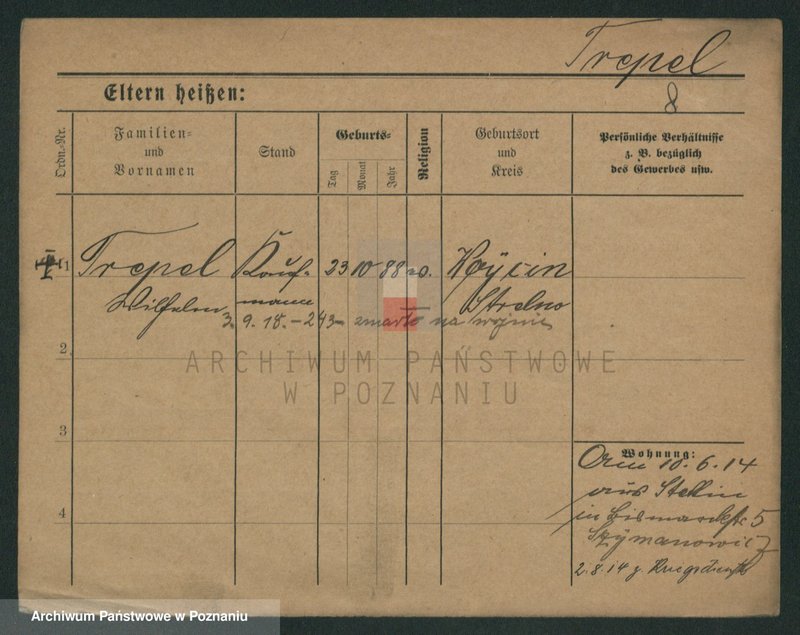 Trepel
8
Eltern heißen:
Ordn.-Nr.
Familien-
und
Vornamen
Stand
Geburts-
Tag
Monat
Jahr
Religion
Geburtsort
und
Kreis
Persönliche Verhältnisse
z. B. bezüglich
des Gewerbes usw.
1 Trepel Kauf- 23 10 88
Wilhelm mann Strelno
3. 9. 18. – 243 – zmarł na wojnie
2
ARCHIWUM PAŃSTWOWE
W POZNANIU
3
Wohnung:
18. 6. 14
aus Stettin
in Bismarckstr 5
Szymanowicz
4
2. 8. 14 z. Kriegsdienst
Archiwum Państwowe w Poznaniu